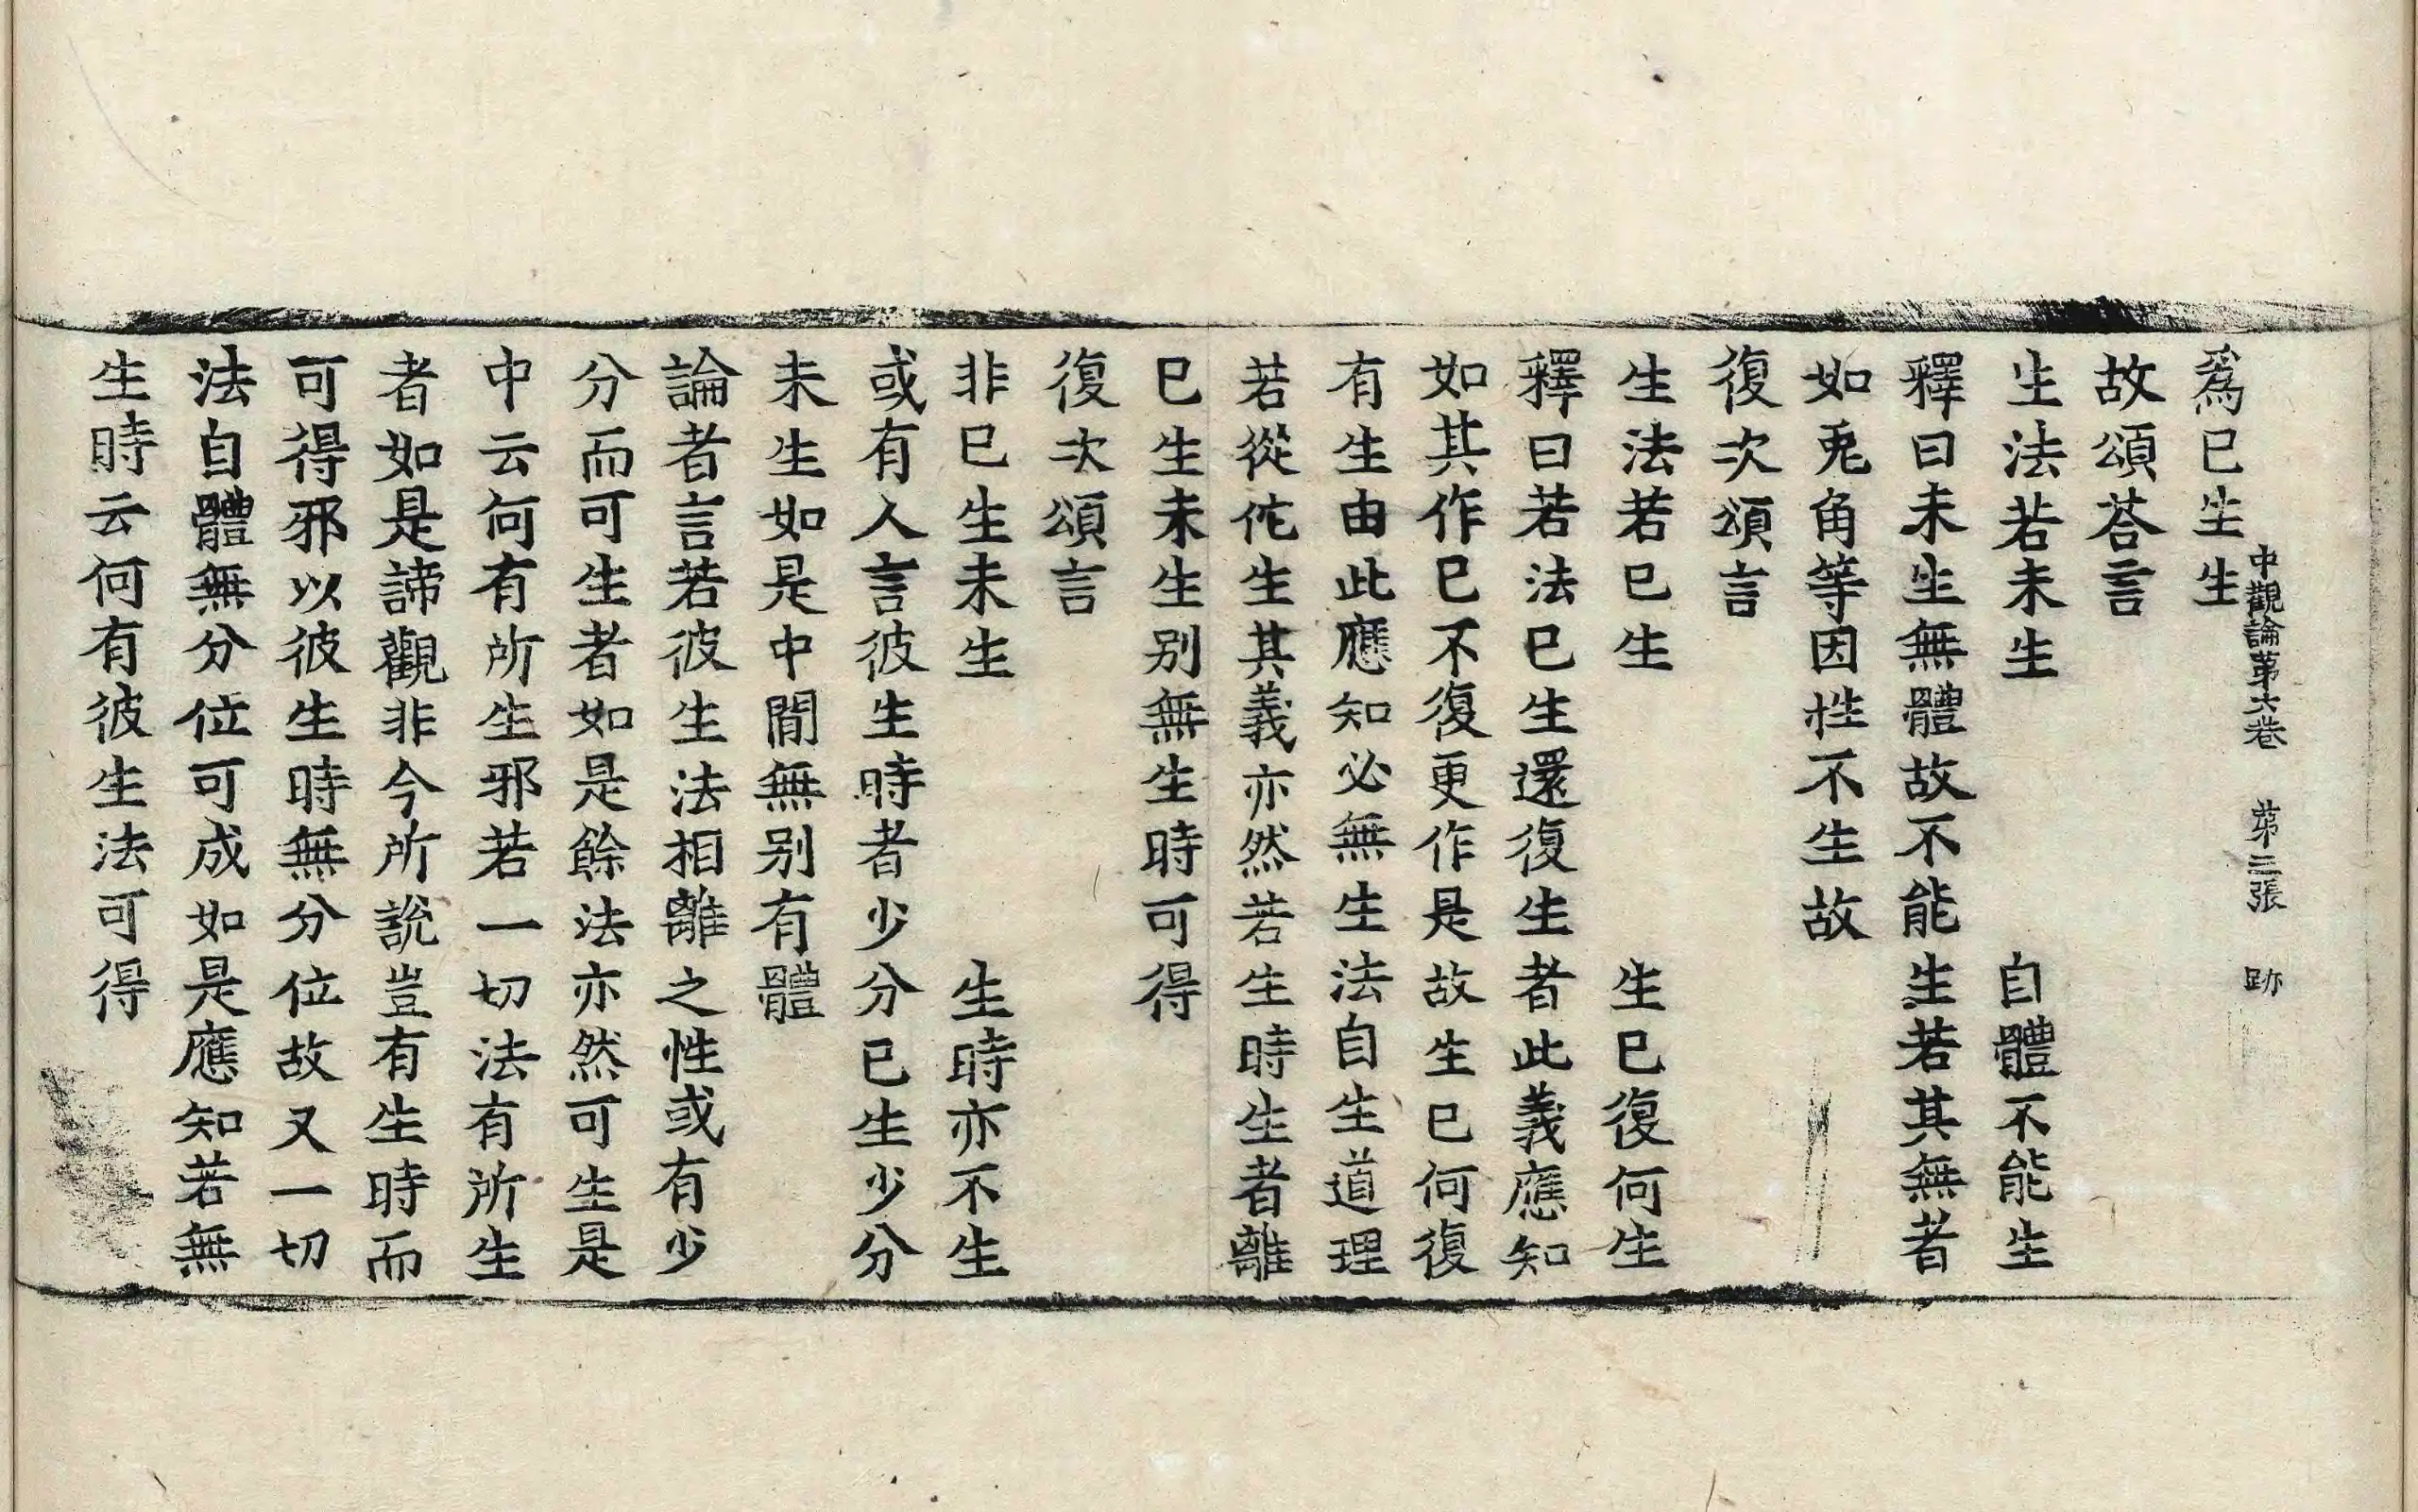 中觀論第六卷　第三張　跡
爲已生生
故頌荅言
生法若未生　自體不能生
釋曰未生無體故不能生若其無者
如兎角等因性不生故
復次頌言
生法若已生　生已復何生
釋曰若法已生還復生者此義應知
如其作已不復更作是故生已何復
有生由此應知必無生法自生道理
若從佗生其義亦然若生時生者離
已生未生别無生時可得
復次頌言
非已生未生　生時亦不生
或有人言彼生時者少分已生少分
未生如是中閒無别有體
論者言若彼生法相離之性或有少
分而可生者如是餘法亦然可生是
中云何有所生邪若一切法有所生
者如是諦觀非今所說豈有生時而
可得邪以彼生時無分位故又一切
法自體無分位可成如是應知若無
生時云何有彼生法可得